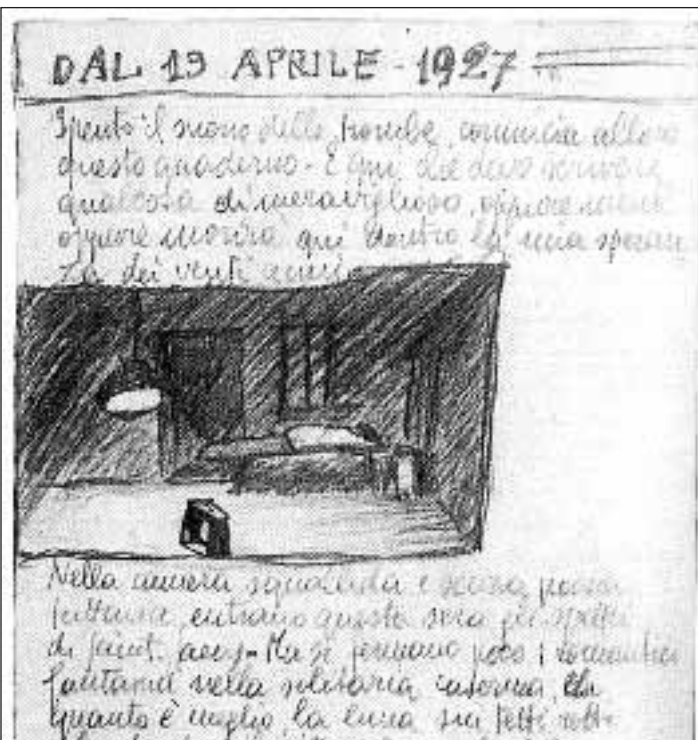 DAL 13 APRILE - 1927
Spento il suono delle trombe, comincia allora
questo quaderno - È qui che devo scrivere
qualcosa di meraviglioso, oppure
oppure morirà qui dentro la mia speran
za dei venti anni
Nella camera squallida e senza
entrano questa sera gli spettri
di Ma si fermano poco i romantici
fantasmi nella solitaria caserma,
quanto è meglio la luna sui tetti